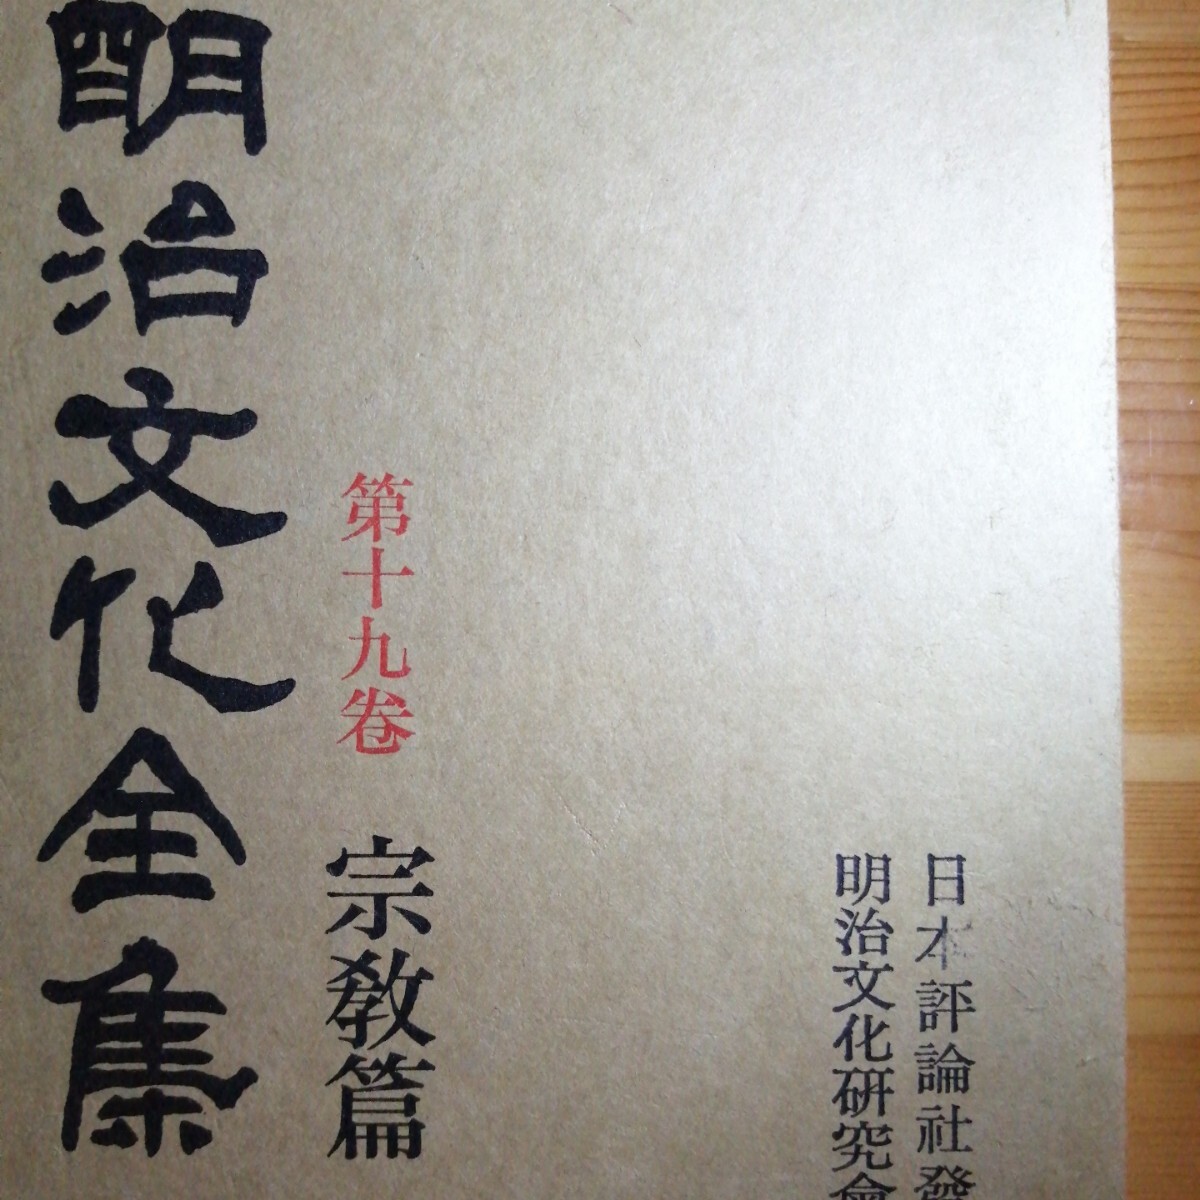 日本評論社發
明治文化硏究會
第十九卷 宗敎篇
明治文化全集